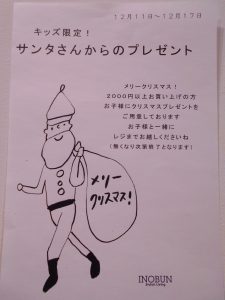 12月11日～12月17日
キッズ限定！
サンタさんからのプレゼント
メリークリスマス！
2000円以上お買い上げの方
お子様にクリスマスプレゼントを
ご用意しております
お子様と一緒に
レジまでお越しくださいね
(無くなり次第終了となります)
メリー
クリスマス！
INOBUN